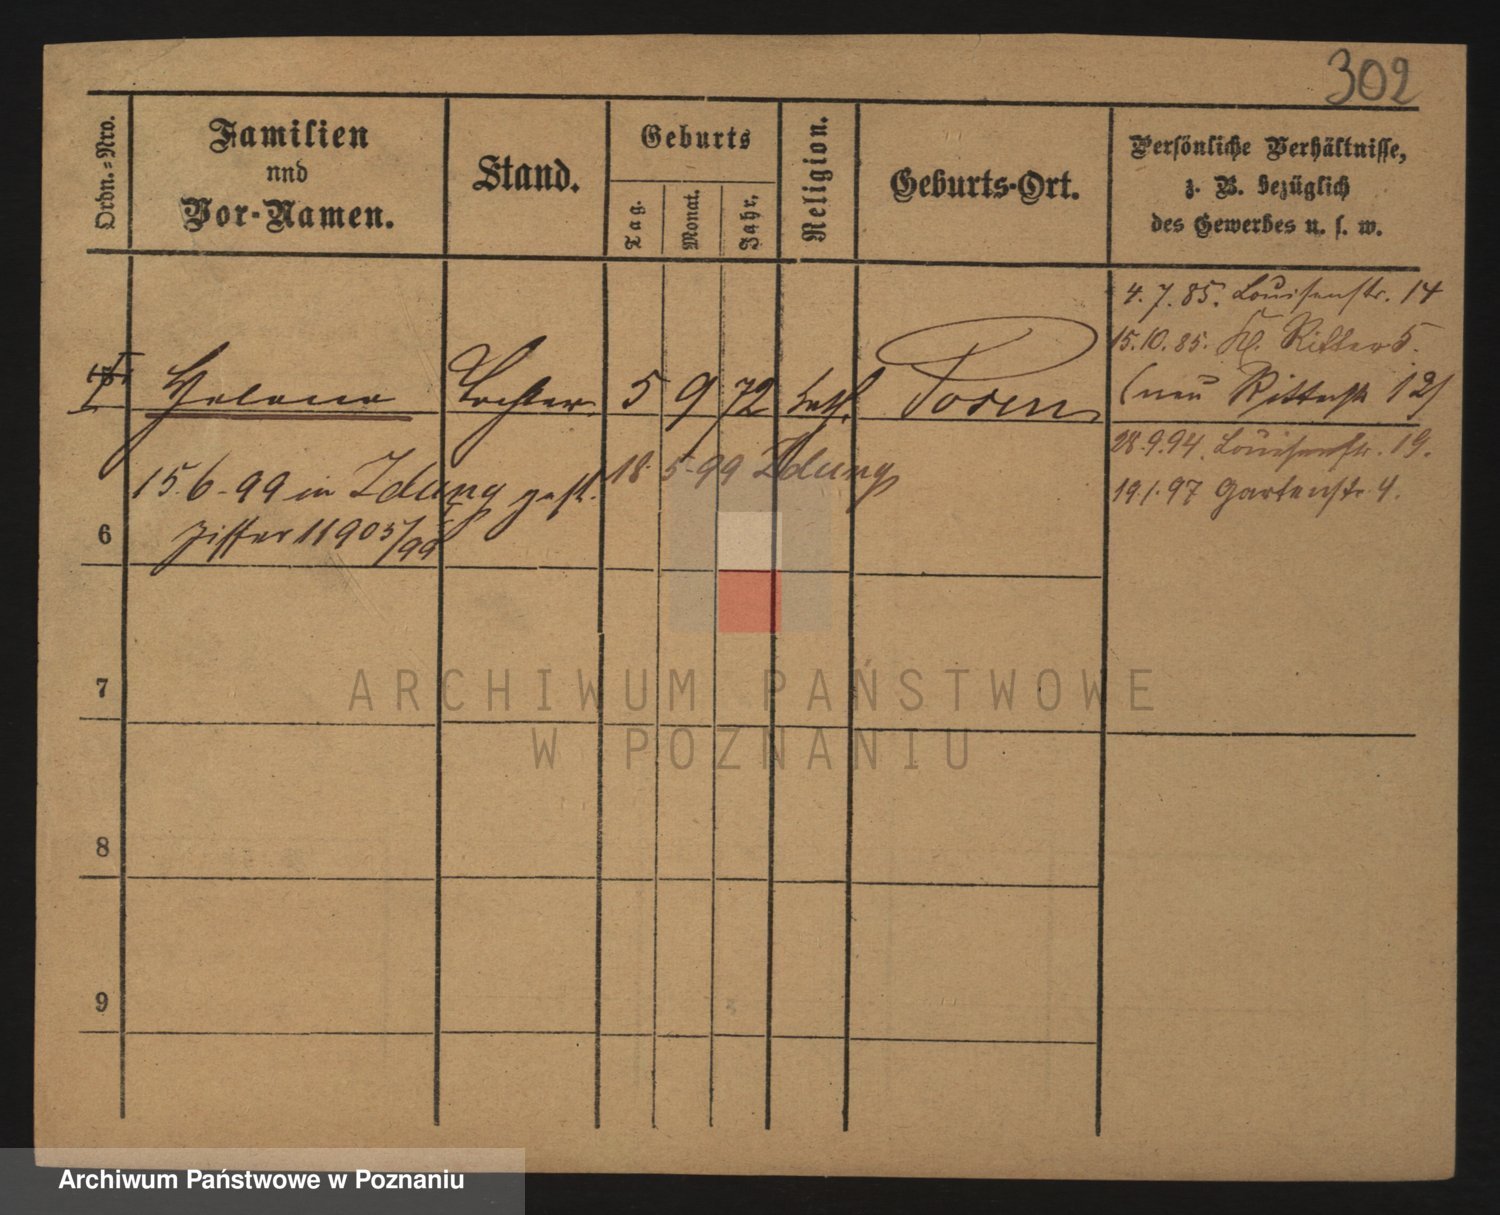 302
Ordn.-Nro.
Familien
nnd
Vor-Namen.
Stand.
Geburts
Tag.
Monat.
Jahr.
Religion.
Geburts-Ort.
Persönliche Verhältnisse,
z. B. bezüglich
des Gewerbes u. s. w.
4. 7. 85. Louisenstr. 14
15.10.85. Kl. Ritter 5.
(neu Ritterstr 12)
Helene Tochter 5 9 72 kath. Posen
28.9.94. Louisenstr. 19.
19.1.97 Gartenstr. 4.
18. 5. 99 Zdung
15. 6. 99 in Zdung gest.
Ziffer 11905/99
6
7
8
9
ARCHIWUM PAŃSTWOWE
W POZNANIU
Archiwum Państwowe w Poznaniu